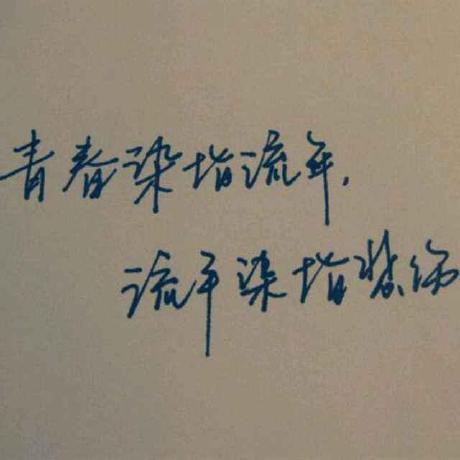 青春染指流年,
流年染指悲伤